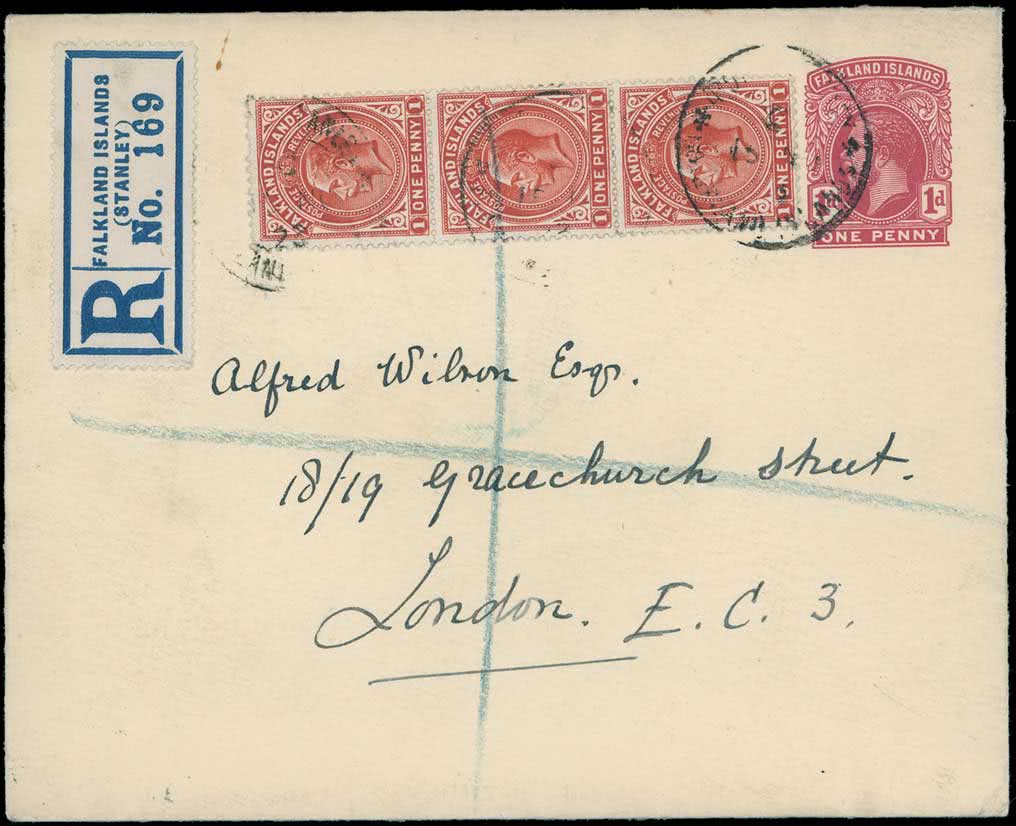 FALKLAND ISLANDS
(STANLEY)
No. 169
R
FALKLAND ISLANDS
POSTAGE REVENUE
1 ONE PENNY 1
FALKLAND ISLANDS
POSTAGE
1 ONE PENNY 1
FALKLAND ISLANDS
POSTAGE REVENUE
1 ONE PENNY 1
FALKLAND ISLANDS
1d 1d
ONE PENNY
Alfred Wilson Esqr.
18/19 Gracechurch Street.
London. E. C. 3.